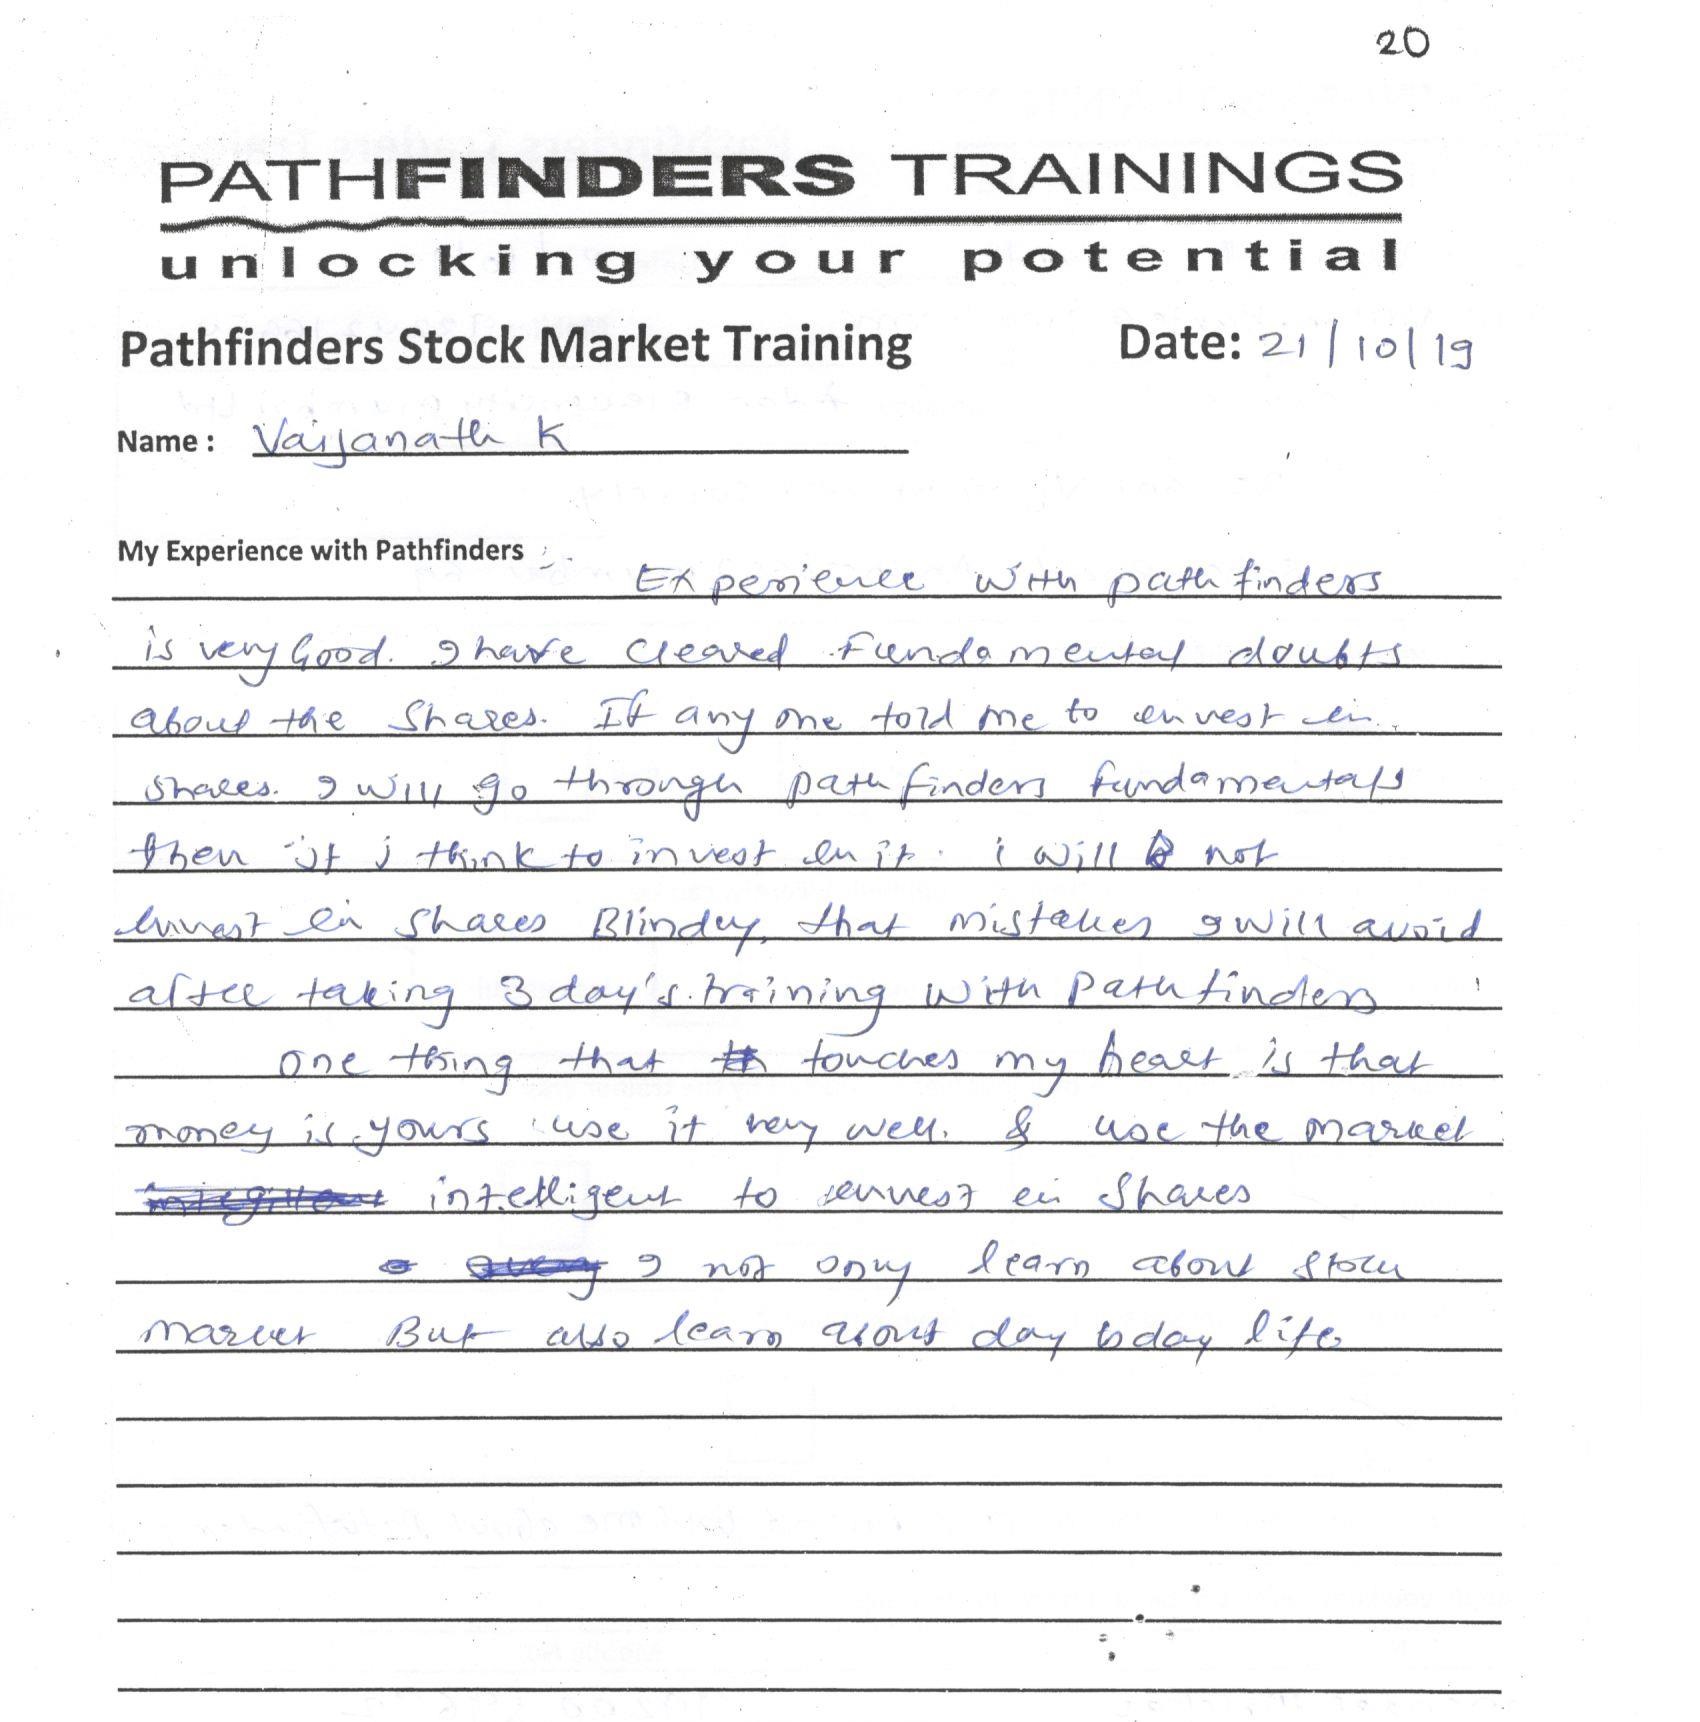 20
PATHFINDERS TRAININGS
unlocking your potential
Pathfinders Stock Market Training Date: 21/10/19
Name: Vaijanath K
My Experience with Pathfinders :-
Experience with pathfinders
is very Good. I have cleared Fundamental doubts
about the Shares. If any one told me to invest in
shares. I will go through pathfinders fundamentals
then if i think to invest in it. i will not
invest in shares Blindly, that mistakes I will avoid
after taking 3 day's training with Pathfinders
one thing that touches my heart is that
money is yours use it very well. & use the market
intelligent to invest in Shares
I not only learn about stock
market But also learn about day today life